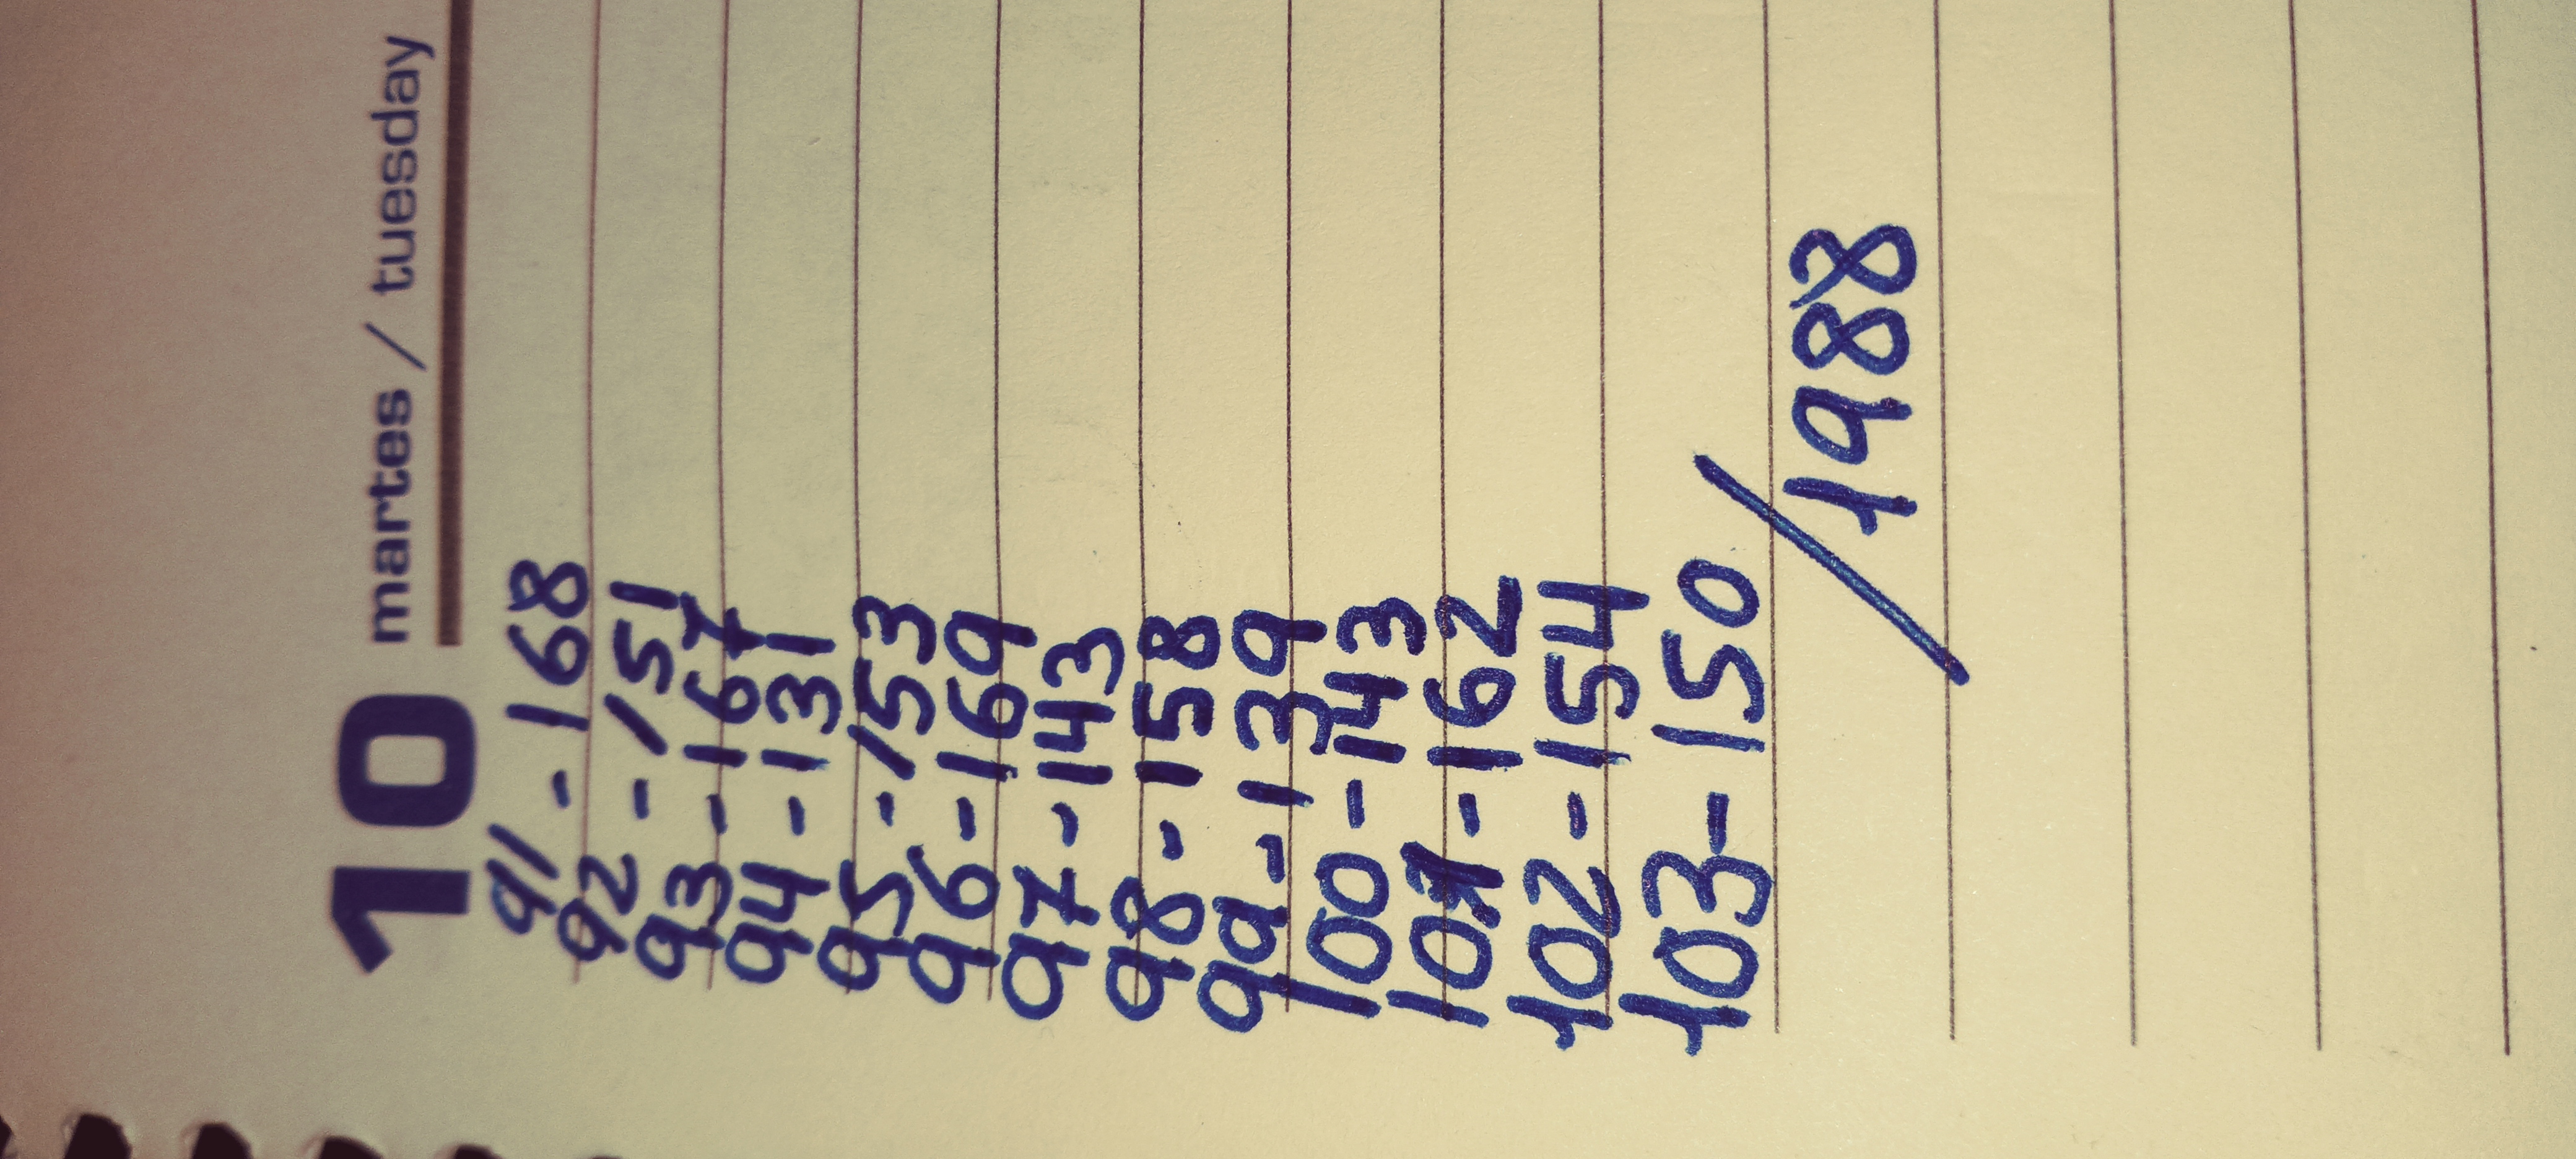 10 martes / tuesday
91 - 168
92 - 151
93 - 167
94 - 131
95 - 153
96 - 169
97 - 143
98 - 158
99 - 139
100 - 143
101 - 162
102 - 154
103 - 150
/1988